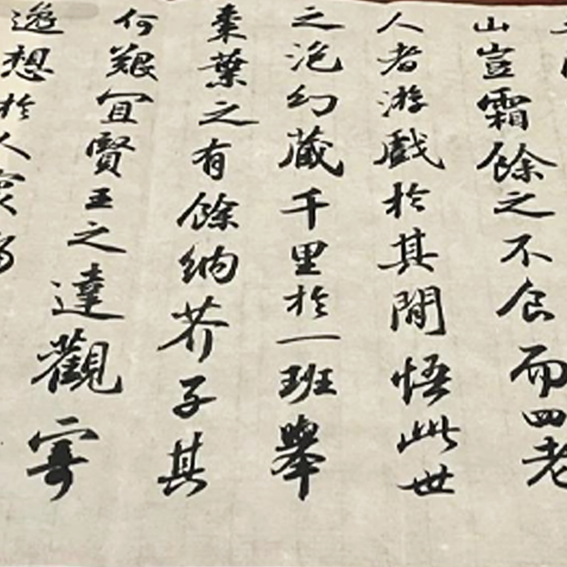 山豈霜餘之不食而四老
人者游戲於其間悟此世
之泡幻藏千里於一班舉
棗葉之有餘納芥子其
何艱宜賢王之達觀寄
逸想於人寰